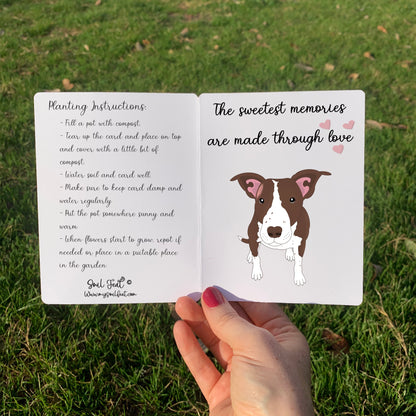 Planting Instructions:
- Fill a pot with compost.
- Tear up the card and place on top
and cover with a little bit of
compost.
- Water soil and card well.
- Make sure to keep card damp and
water regularly.
- Put the pot somewhere sunny and
warm.
- When flowers start to grow, repot if
needed or place in a suitable place
in the garden.
The sweetest memories
are made through love